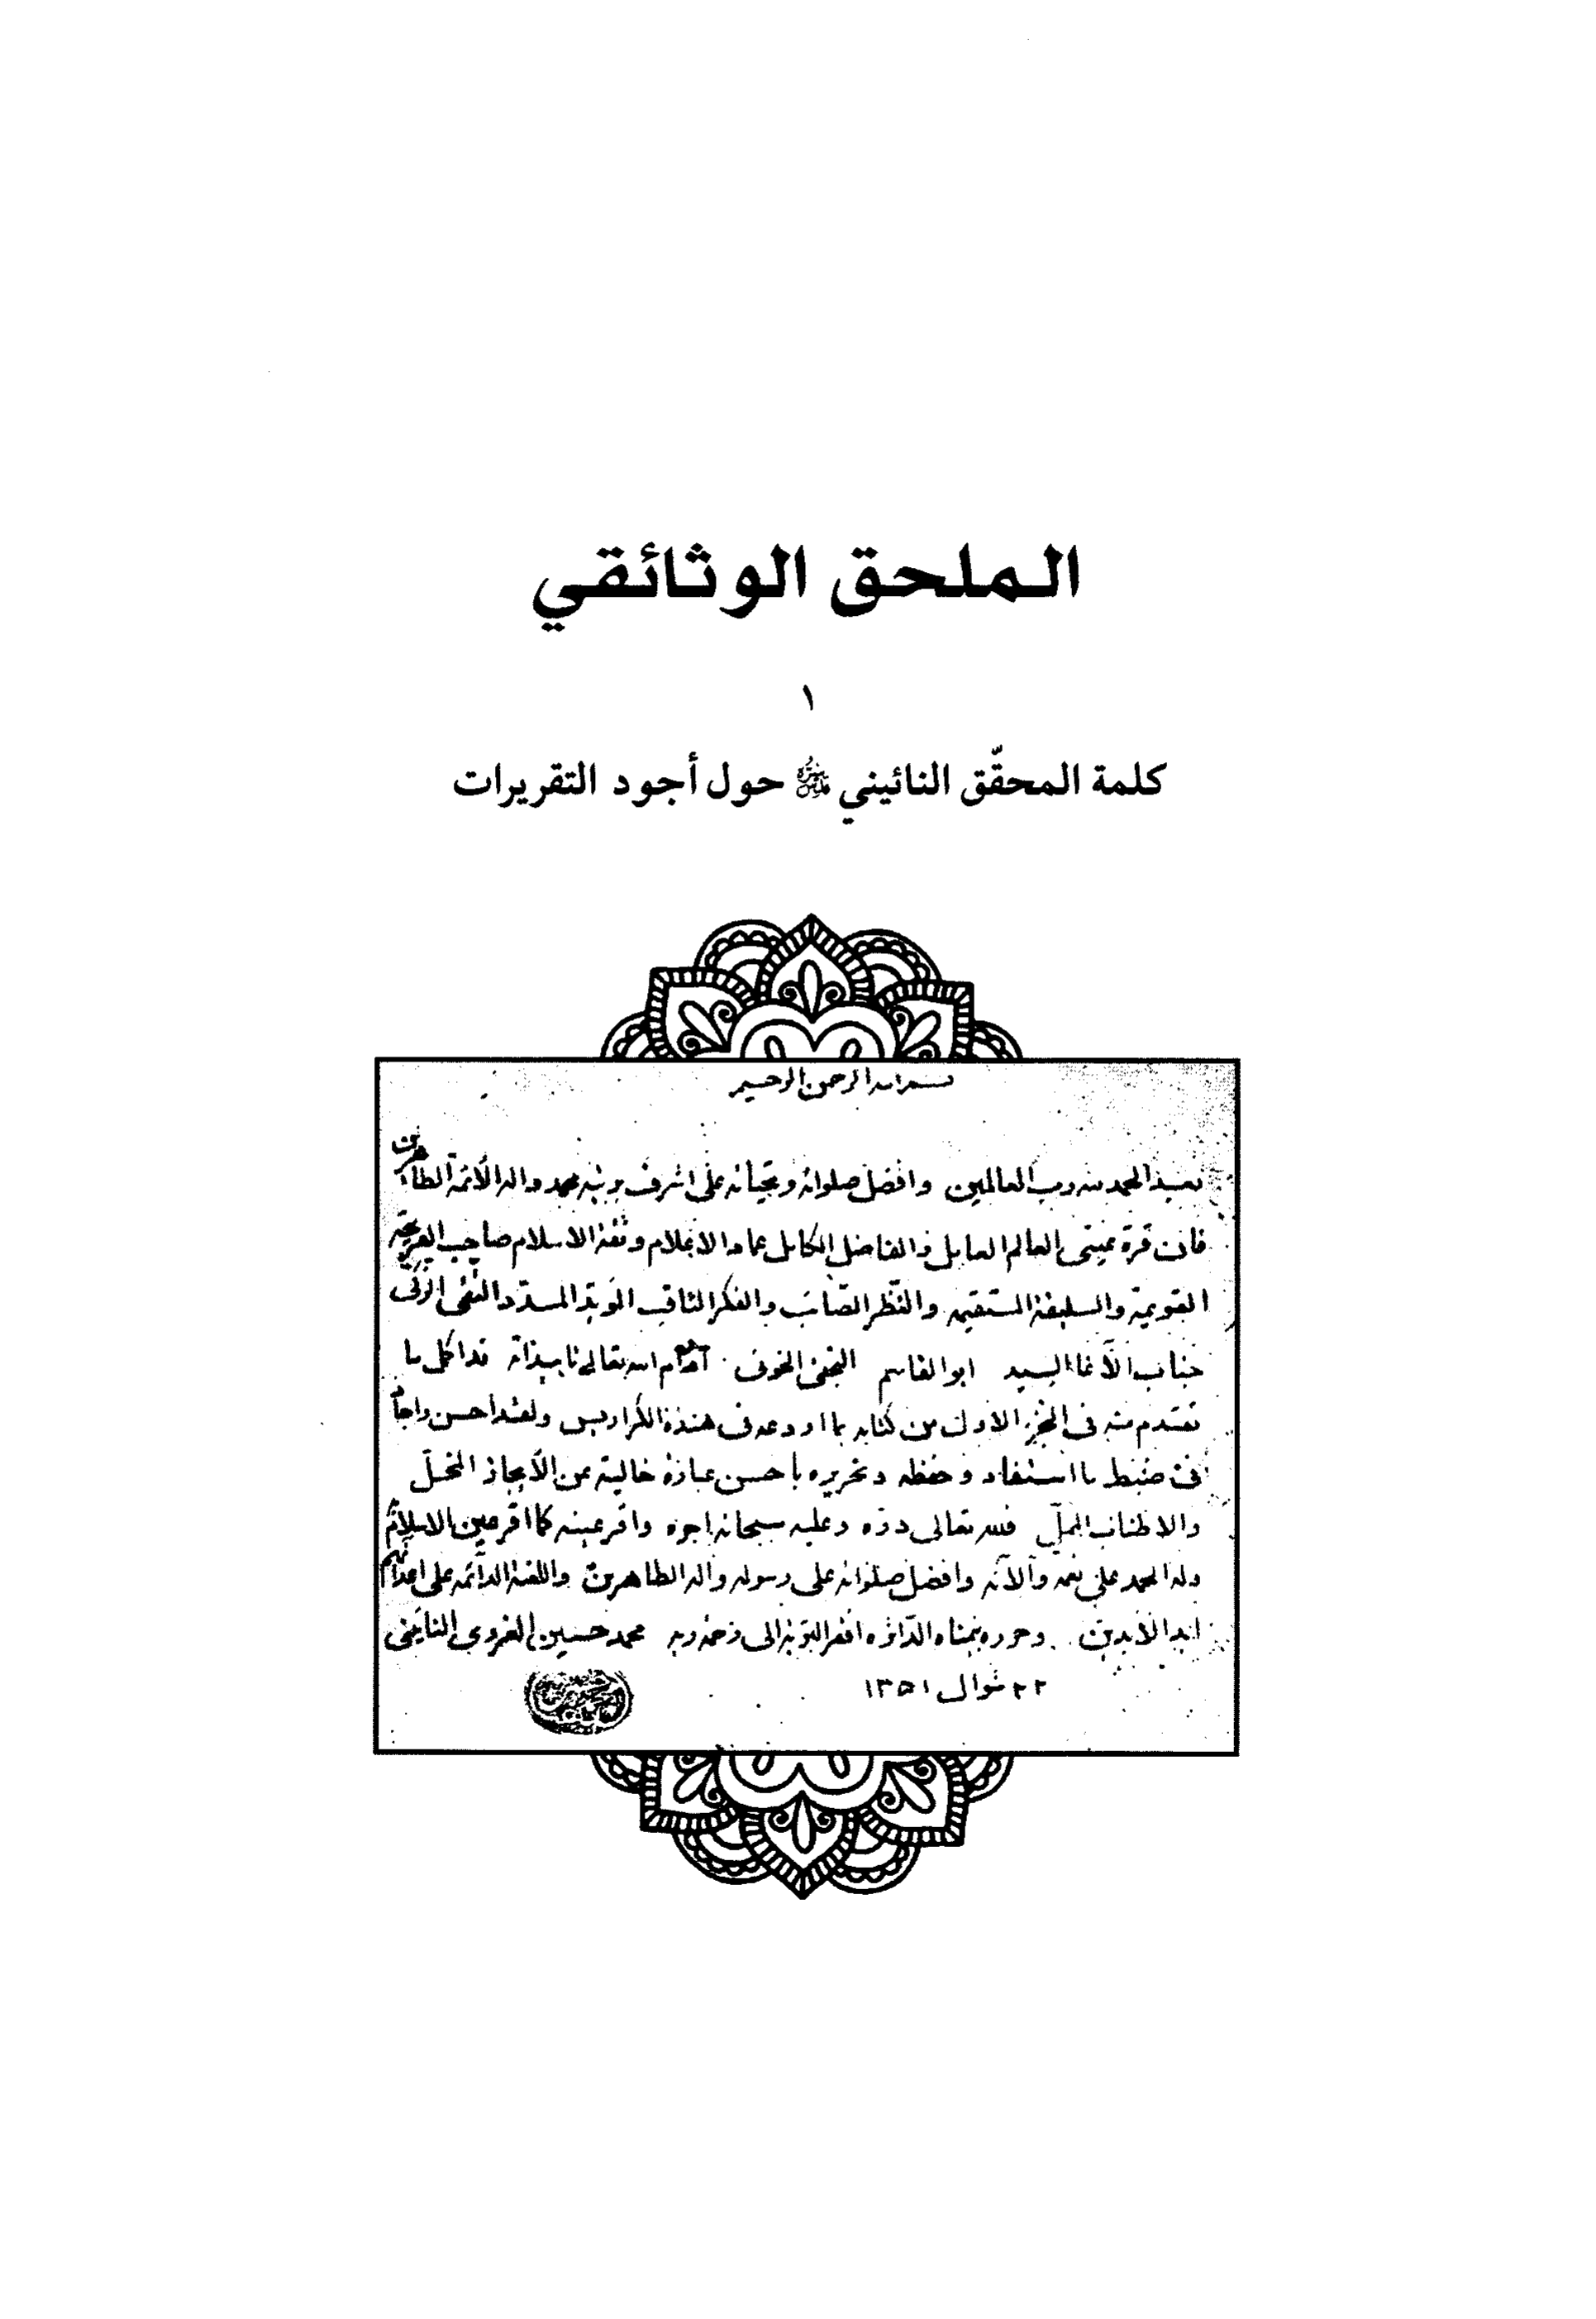 الملحق الوثائقي
١
كلمة المحقّق النائيني قدس سره حول أجود التقريرات
بسم الله الرحمن الرحيم
بعد الحمد لله رب العالمين وافضل صلواته وتحياته على اشرف بريته محمد واله الأئمة الطاهرين
فان قرة عينى العالم العامل والفاضل الكامل عماد الاعلام وثقة الاسلام صاحب القريحة
القويمة والسليقة المستقيمه والنظر الصّائب والفكر الثاقب المويّد المسدّد التقى الزكى
جناب الآغا السيد ابو القاسم النجفى الخوئى ادام الله تعالى تاييداته قد اكمل ما
تقدم منه فى الجزء الاول من كتابه بما اودعه فى هذه الكراريس ولقد احسن واجاد
فى ضبط ما استفاد وحفظه وتحريره باحسن عبارة خالية عن الأيجاز المخلّ
والاطناب المملّ فلله تعالى درّه وعليه سبحانه اجره واقر عينه كما اقر عين الاسلام
وله الحمد على نعمه وآلائه وافضل صلواته على رسوله واله الطاهرين واللعنة الدائمه على اعدائهم
ابد الأبدين وحرره بيمناه الدّاثره افقر البريّة الى رحمة ربه محمد حسين الغروى النائينى
٢٢ شوال ١٣٥١